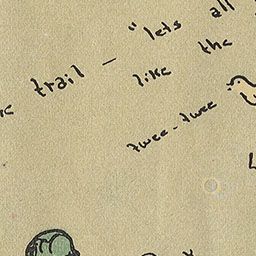 trail — "lets all
like the
twee-twee